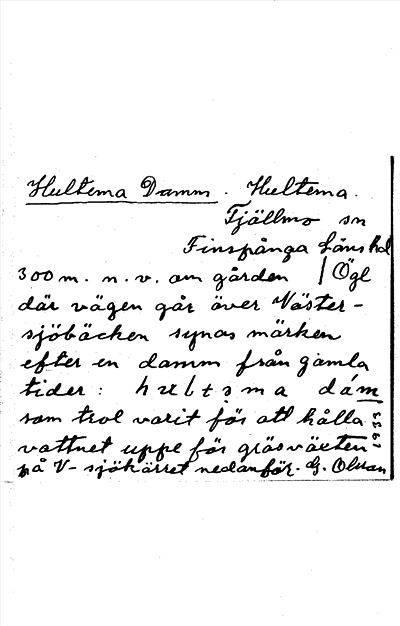 Hultema Damm. Hultema.
Tjällmo sn
Finspånga läns hd
300 m. n. v. om gården / Ögl
där vägen går över Väster-
sjöbäcken synas märken
efter en damm från gamla
tider: hultema dám
som trol varit för att hålla
vattnet uppe för gräsväxten
på V-sjökärret nedanför. G. Olsson
1933